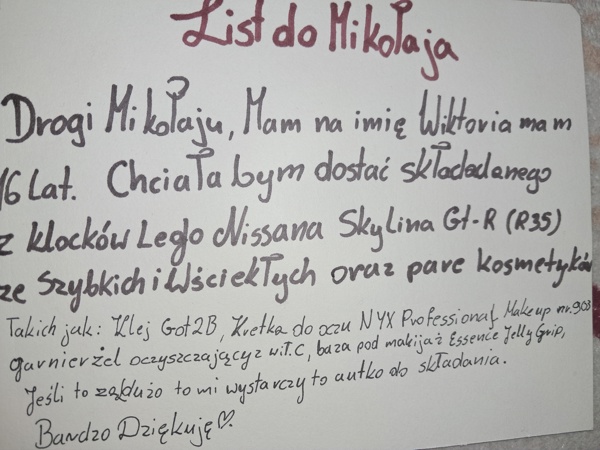 List do Mikołaja
Drogi Mikołaju, Mam na imię Wiktoria mam
16 Lat. Chciała bym dostać składadanego
z klocków Lego Nissana Skylina Gt-R (R35)
ze Szybkich i Wściekłych oraz pare kosmetyków
Takich jak: Klej Got2B, Kretka do oczu NYX Professional Makeup nr.903
garnier żel oczyszczający z wit.C, baza pod makijaż Essence Jelly Grip,
Jeśli to za dużo to mi wystarczy to autko do składania.
Bardzo Dziękuję ♡.